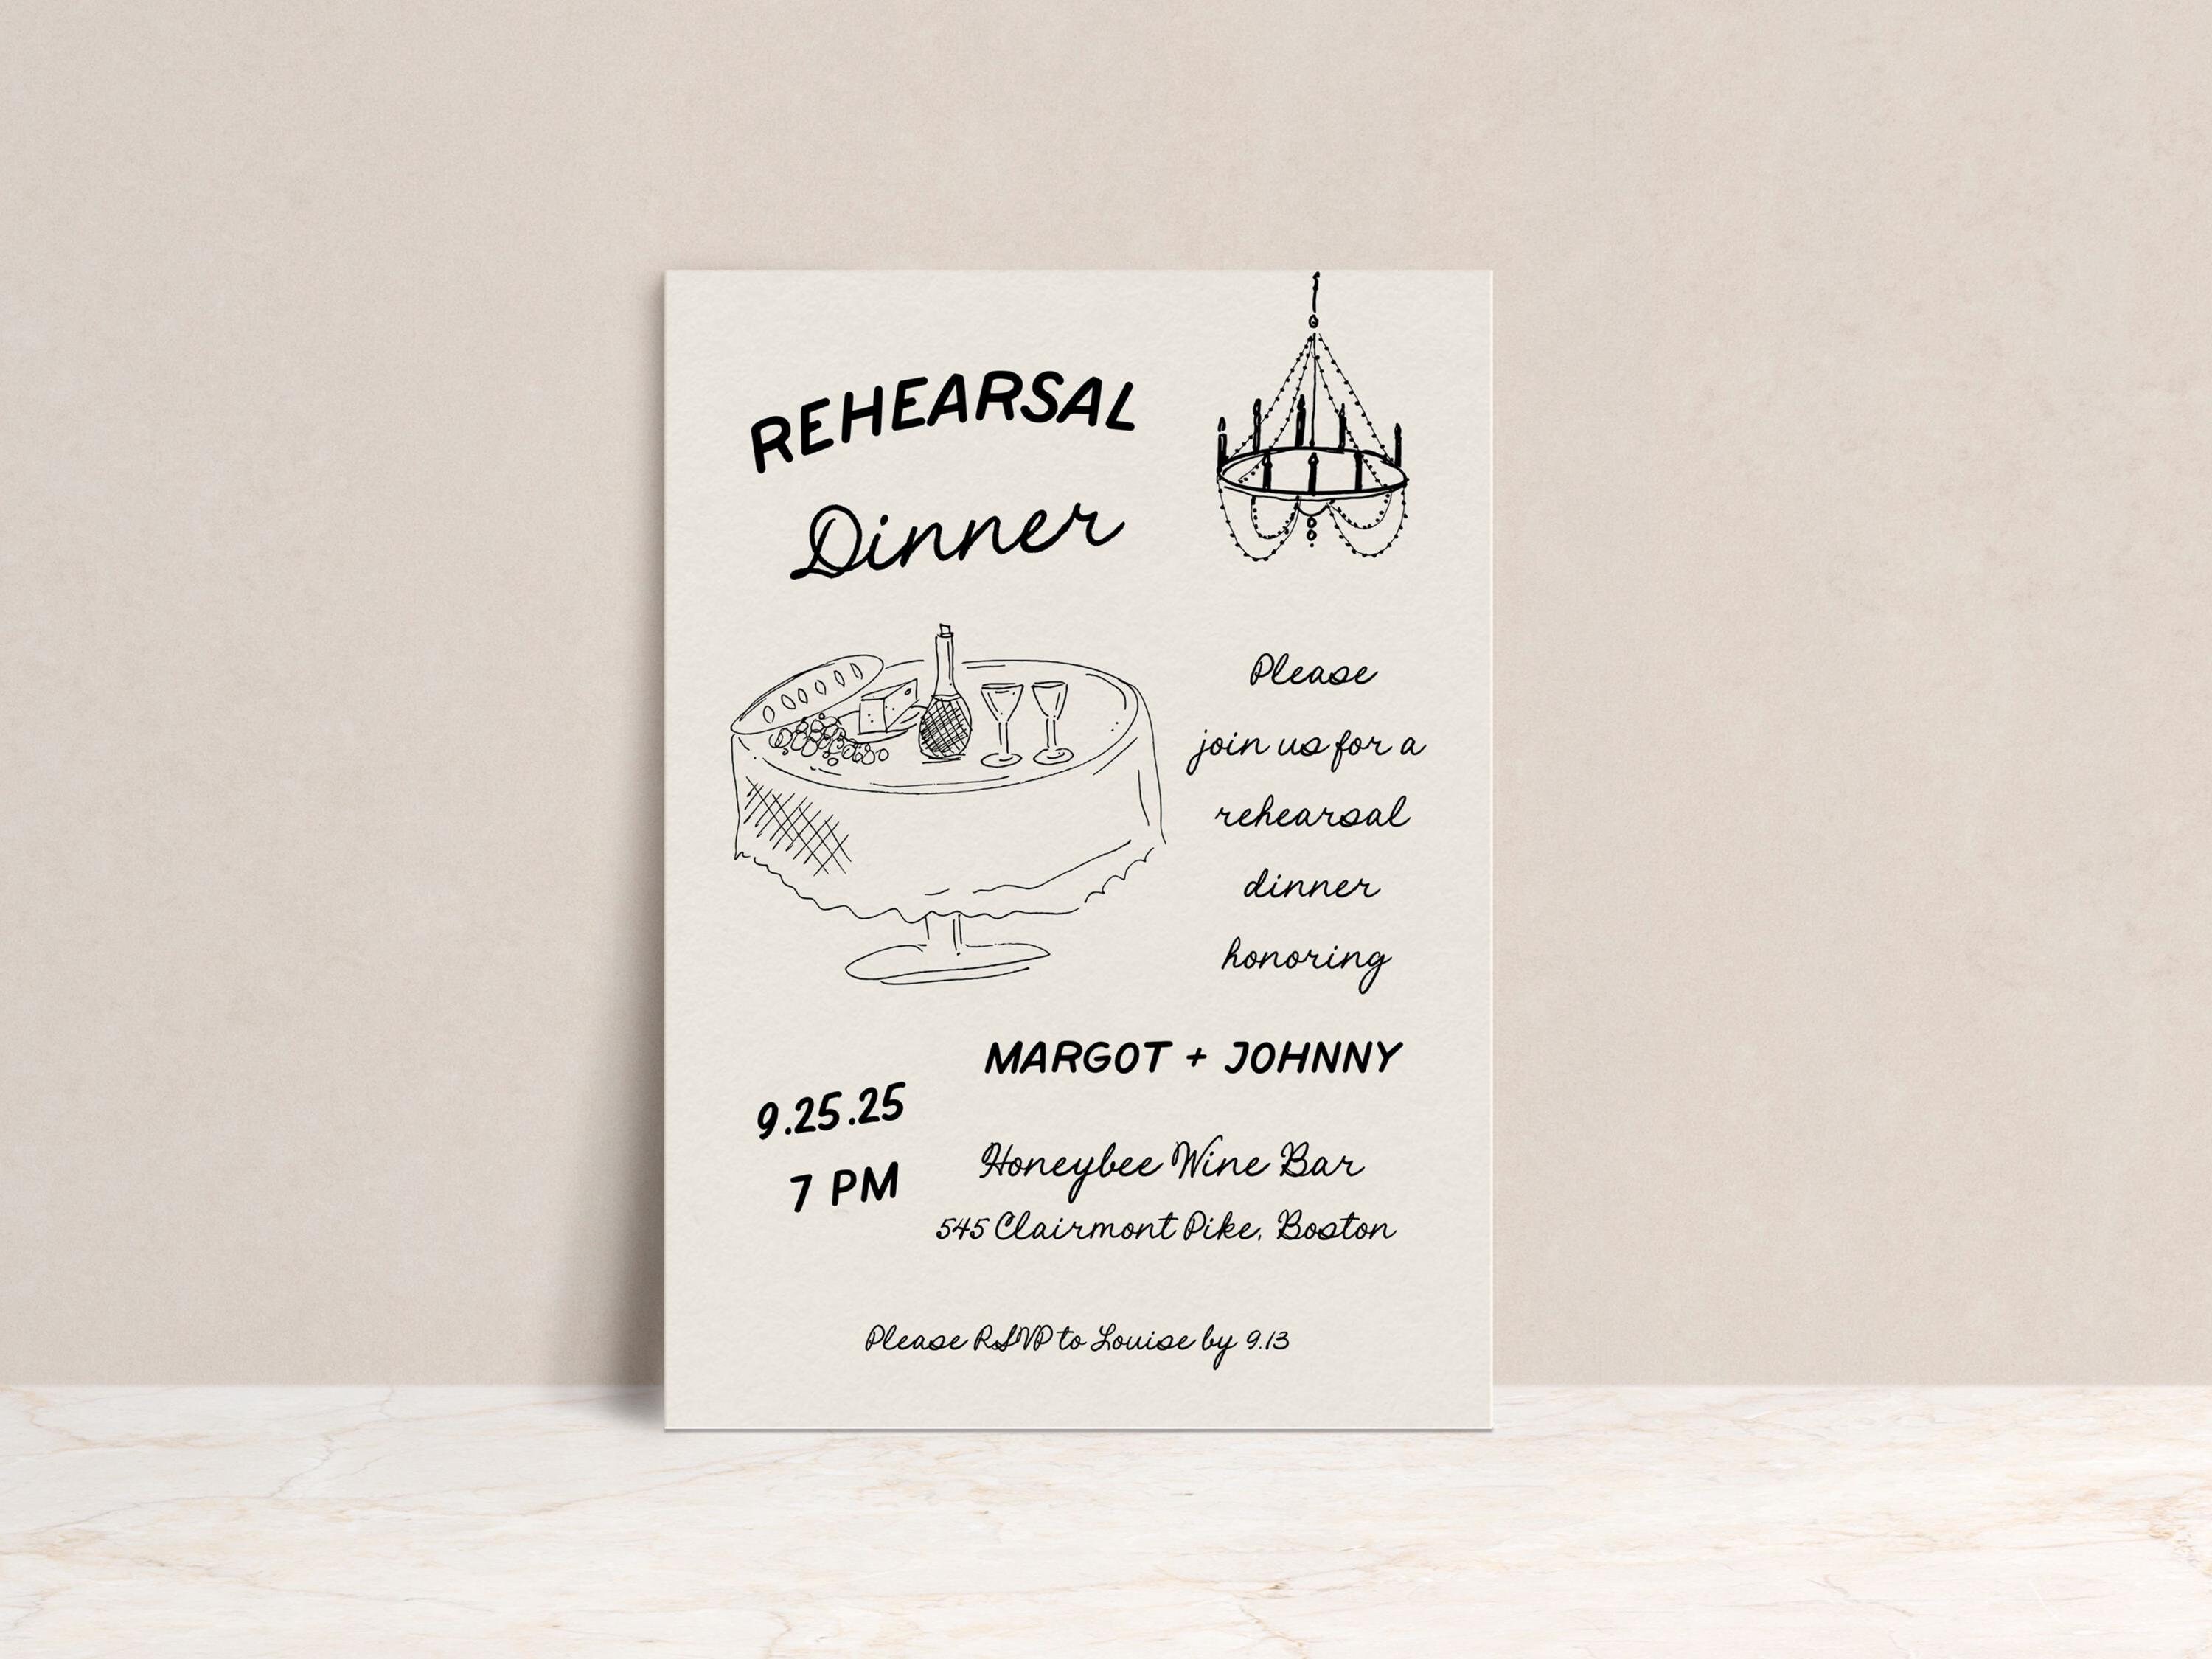 REHEARSAL
Dinner
Please
join us for a
rehearsal
dinner
honoring
MARGOT + JOHNNY
9.25.25
7 PM
Honeybee Wine Bar
545 Clairmont Pike, Boston
Please RSVP to Louise by 9.13